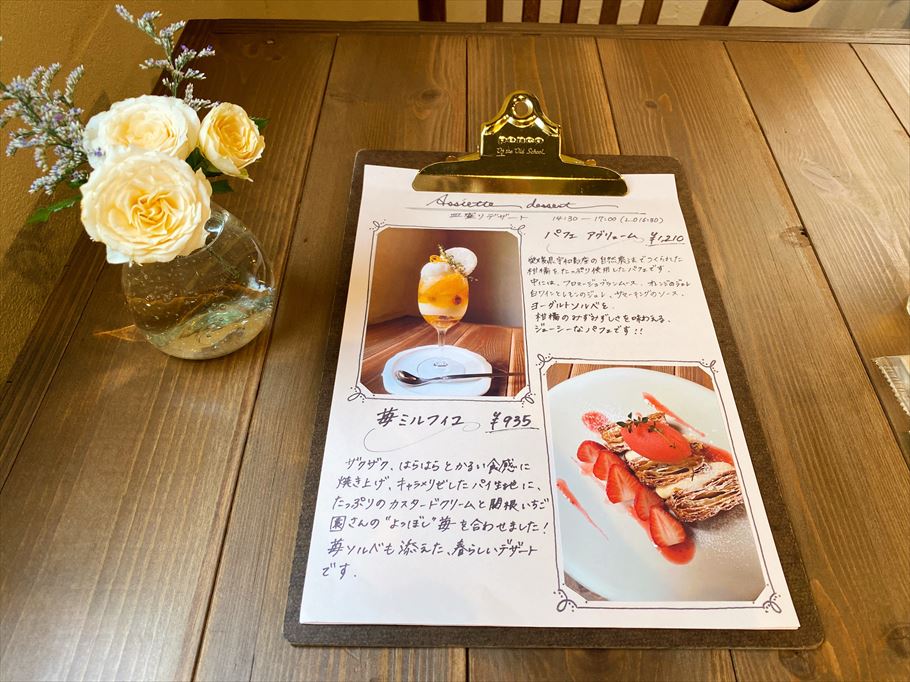 PENCO
Up the Old School
Assiette dessert
皿盛りデザート 14:30-17:00(L.O 16:30)
パフェ アグリューム ¥1,210
愛媛県宇和島産の自然農法でつくられた
柑橘をたっぷり使用したパフェです。
中には、フロマージュブランムース、オレンジのジュレ
白ワインとレモンのジュレ、サマーキングのソース、
ヨーグルトソルベを
柑橘のみずみずしさを味わえる、
ジューシーなパフェです!!
苺ミルフィユ ¥935
ザクザク、はらはらとかるい食感に
焼き上げ、キャラメリゼしたパイ生地に、
たっぷりのカスタードクリームと関根いちご
園さんの"よつぼし"苺を合わせました!
苺ソルベも添えた、春らしいデザート
です.